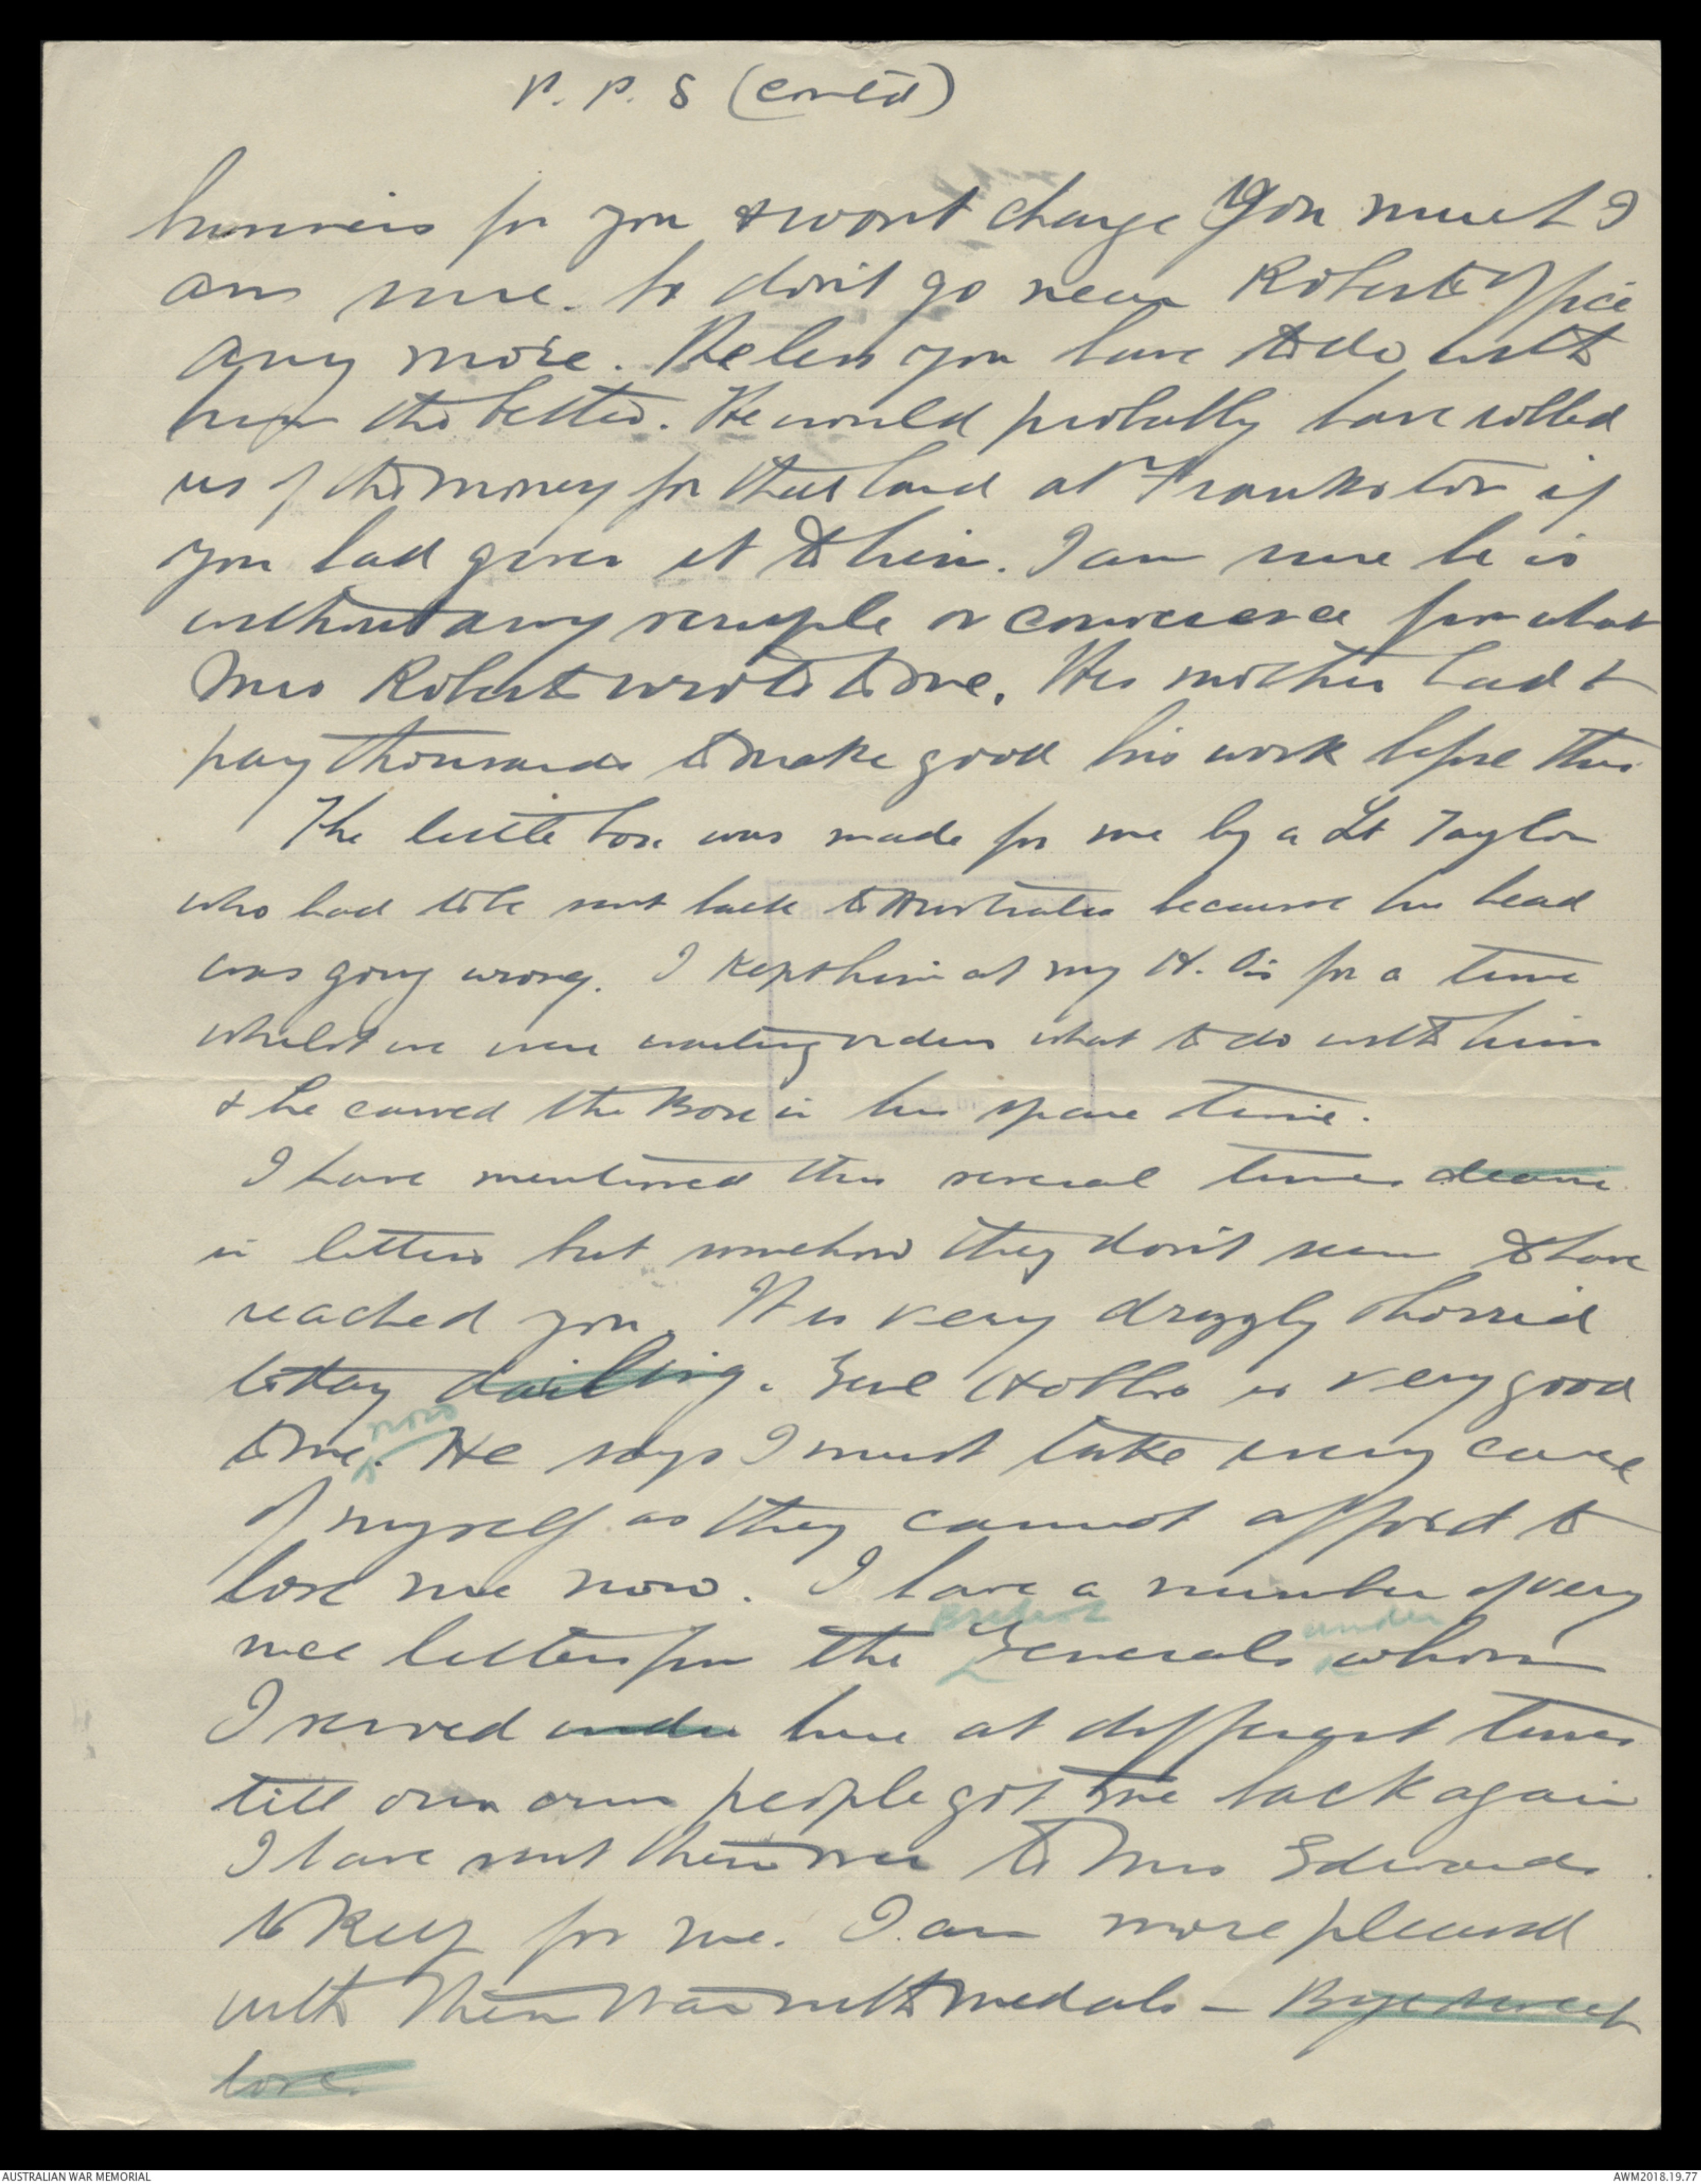 P. P. S (Contd)
business for you & wont charge you much I
am sure. So don't go near Roberts Office
any more. The less you have to do with
him the better. He would probably have robbed
us of the money for that land at Frankston if
you had given it to him. I am sure he is
without any scruple or conscience from what
Mrs Roberts wrote to me. His mother had to
pay thousands to make good his work before this
The little box was made for me by a Lt Taylor
who had to be sent back to Australia because his head
was going wrong. I kept him at my H. Qrs for a time
whilst we were waiting orders what to do with him
& he carved the Box in his spare time.
I have mentioned this several times dearie
in letters but somehow they don't seem to have
reached you. It is very drizzly & horrid
today darling. Genl Hobbs is very good
to me now. He says I must take every care
of myself as they cannot afford to
lose me now. I have a number of very
nice letters from the British Generals under whom
I served under here at different times
till our own people got me back again
I have sent them over to Mrs Edwards
to keep for me. I am more pleased
with them than with medals – Bye sweet
love.
AUSTRALIAN WAR MEMORIAL
AWM2018.19.77